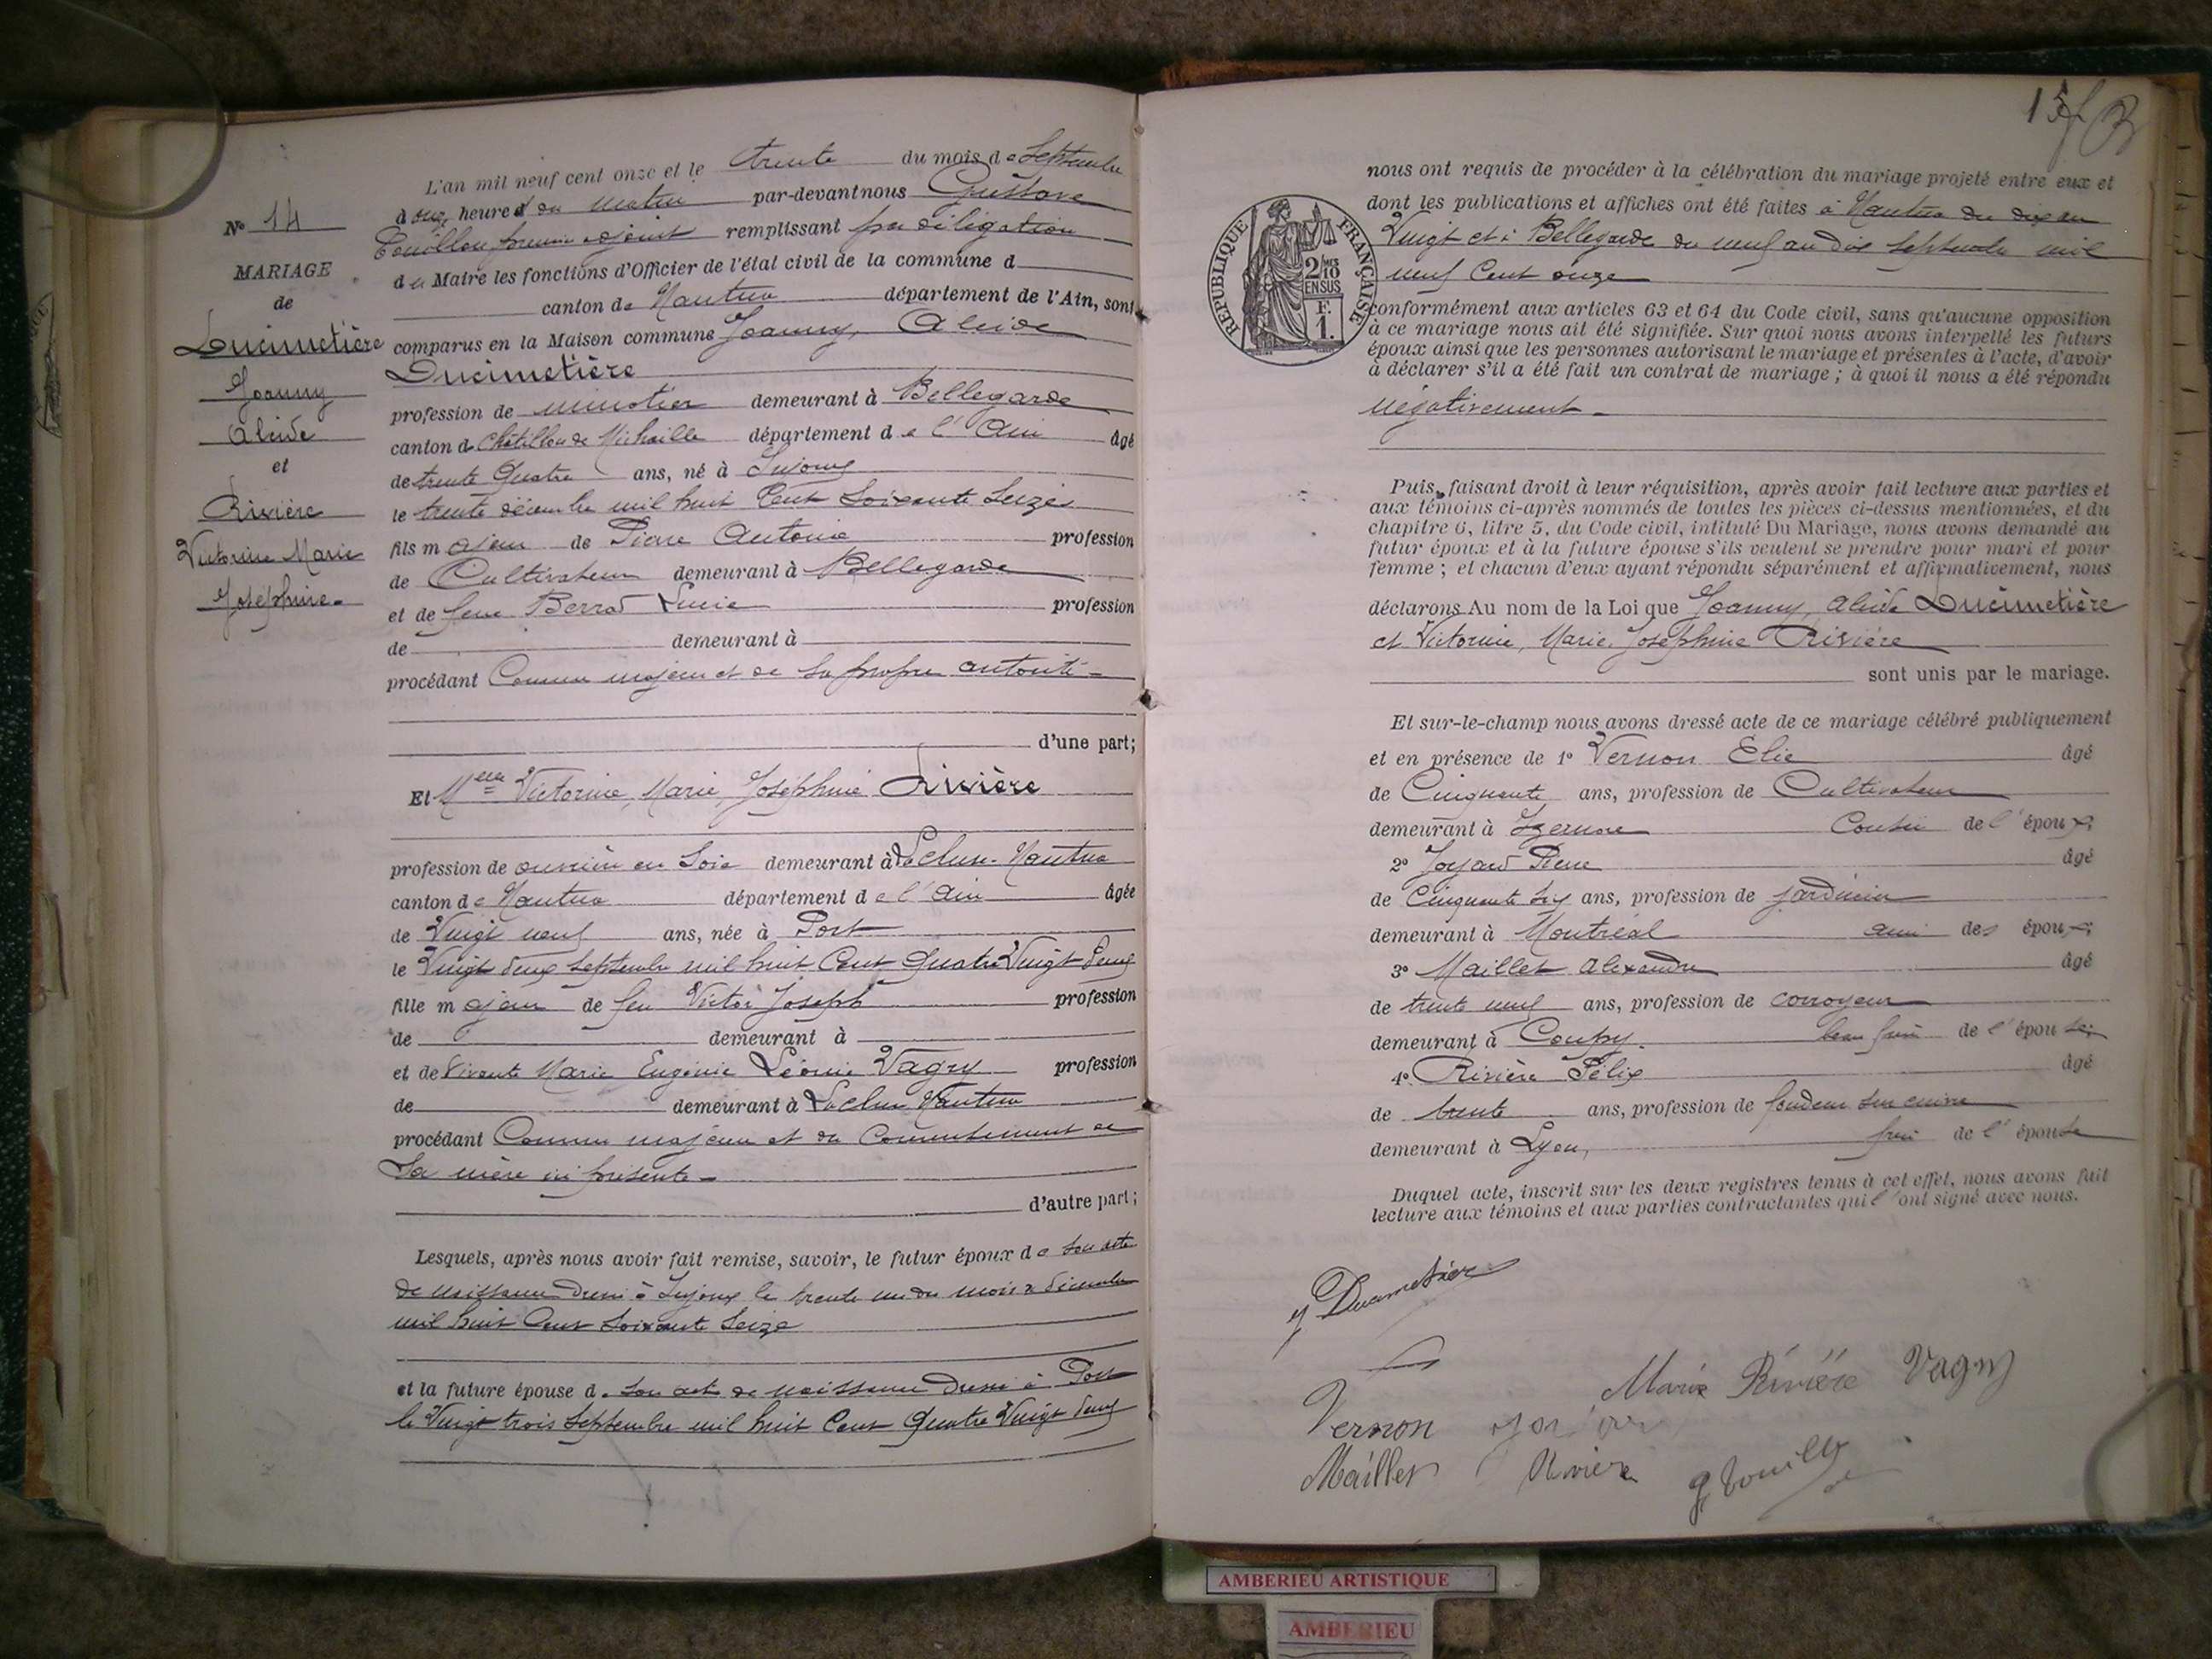 L'an mil neuf cent onze et le trente du mois de Septembre
à onze heures du matin par-devant nous Gustave
Touillon premier adjoint remplissant par déligation
du Maire les fonctions d'Officier de l'état civil de la commune d
canton de Nantua département de l'Ain, sont
comparus en la Maison commune Joanny, Alcide
Ducimetière
profession de minotier demeurant à Bellegarde
canton de Châtillon de Michaille département de l'Ain âgé
de trente quatre ans, né à Injoux
le trente décembre mil huit Cent Soixante Seize
fils majeur de Pierre Antoine profession
de Cultivateur demeurant à Bellegarde
et de feue Berrod Lucie profession
de demeurant à
procédant Comme majeur et de sa propre autorité
d'une part;
Et Melle Victorine, Marie, Joséphine Rivière
profession de ouvrière en Soie demeurant à Lacluse-Nantua
canton de Nantua département de l'Ain âgée
de Vingt neuf ans, née à Port
le Vingt deux Septembre mil huit Cent Quatre Vingt deux
fille majeure de feu Victor Joseph profession
de demeurant à
et de Vivante Marie Eugénie Léonie Vagry profession
de demeurant à Lacluse Nantua
procédant Comme majeure et du Consentement de
Sa mère ici présente
d'autre part;
Lesquels, après nous avoir fait remise, savoir, le futur époux de son acte
de naissance dressé à Injoux le trente un du mois de décembre
mil huit Cent Soixante Seize
et la future épouse d. son acte de naissance dressé à Port
le Vingt trois Septembre mil huit Cent Quatre Vingt deux
No 14
MARIAGE
de
Ducimetière
Joanny
Alcide
et
Rivière
Victorine Marie
Joséphine
15
nous ont requis de procéder à la célébration du mariage projeté entre eux et
dont les publications et affiches ont été faites à Nantua du dix au
Vingt et à Bellegarde du neuf au dix Septembre mil
neuf Cent onze
conformément aux articles 63 et 64 du Code civil, sans qu'aucune opposition
à ce mariage nous ait été signifiée. Sur quoi nous avons interpellé les futurs
époux ainsi que les personnes autorisant le mariage et présentes à l'acte, d'avoir
à déclarer s'il a été fait un contrat de mariage; à quoi il nous a été répondu
négativement
RÉPUBLIQUE FRANÇAISE
2/10
EN SUS
F.
1.
Puis, faisant droit à leur réquisition, après avoir fait lecture aux parties et
aux témoins ci-après nommés de toutes les pièces ci-dessus mentionnées, et du
chapitre 6, litre 5, du Code civil, intitulé Du Mariage, nous avons demandé au
futur époux et à la future épouse s'ils veulent se prendre pour mari et pour
femme; et chacun d'eux ayant répondu séparément et affirmativement, nous
déclarons Au nom de la Loi que Joanny, Alcide Ducimetière
et Victorine, Marie, Joséphine Rivière
sont unis par le mariage.
Et sur-le-champ nous avons dressé acte de ce mariage célébré publiquement
et en présence de 1o Vernon Élie âgé
de Cinquante ans, profession de Cultivateur
demeurant à Izernore Cousin de l'époux;
2o Joyard Pierre âgé
de Cinquante six ans, profession de jardinier
demeurant à Montréal ami des époux;
3o Maillet Alexandre âgé
de trente neuf ans, profession de corroyeur
demeurant à Coupy. beau frère de l'épouse;
4o Rivière Félix âgé
de trente ans, profession de fondeur sur cuivre
demeurant à Lyon, frère de l'épouse
Duquel acte, inscrit sur les deux registres tenus à cet effet, nous avons fait
lecture aux témoins et aux parties contractantes qui l'ont signé avec nous.
J Ducimetière
Marie Rivière Vagry
Vernon
Maillet Rivière
AMBERIEU ARTISTIQUE
AMBERIEU